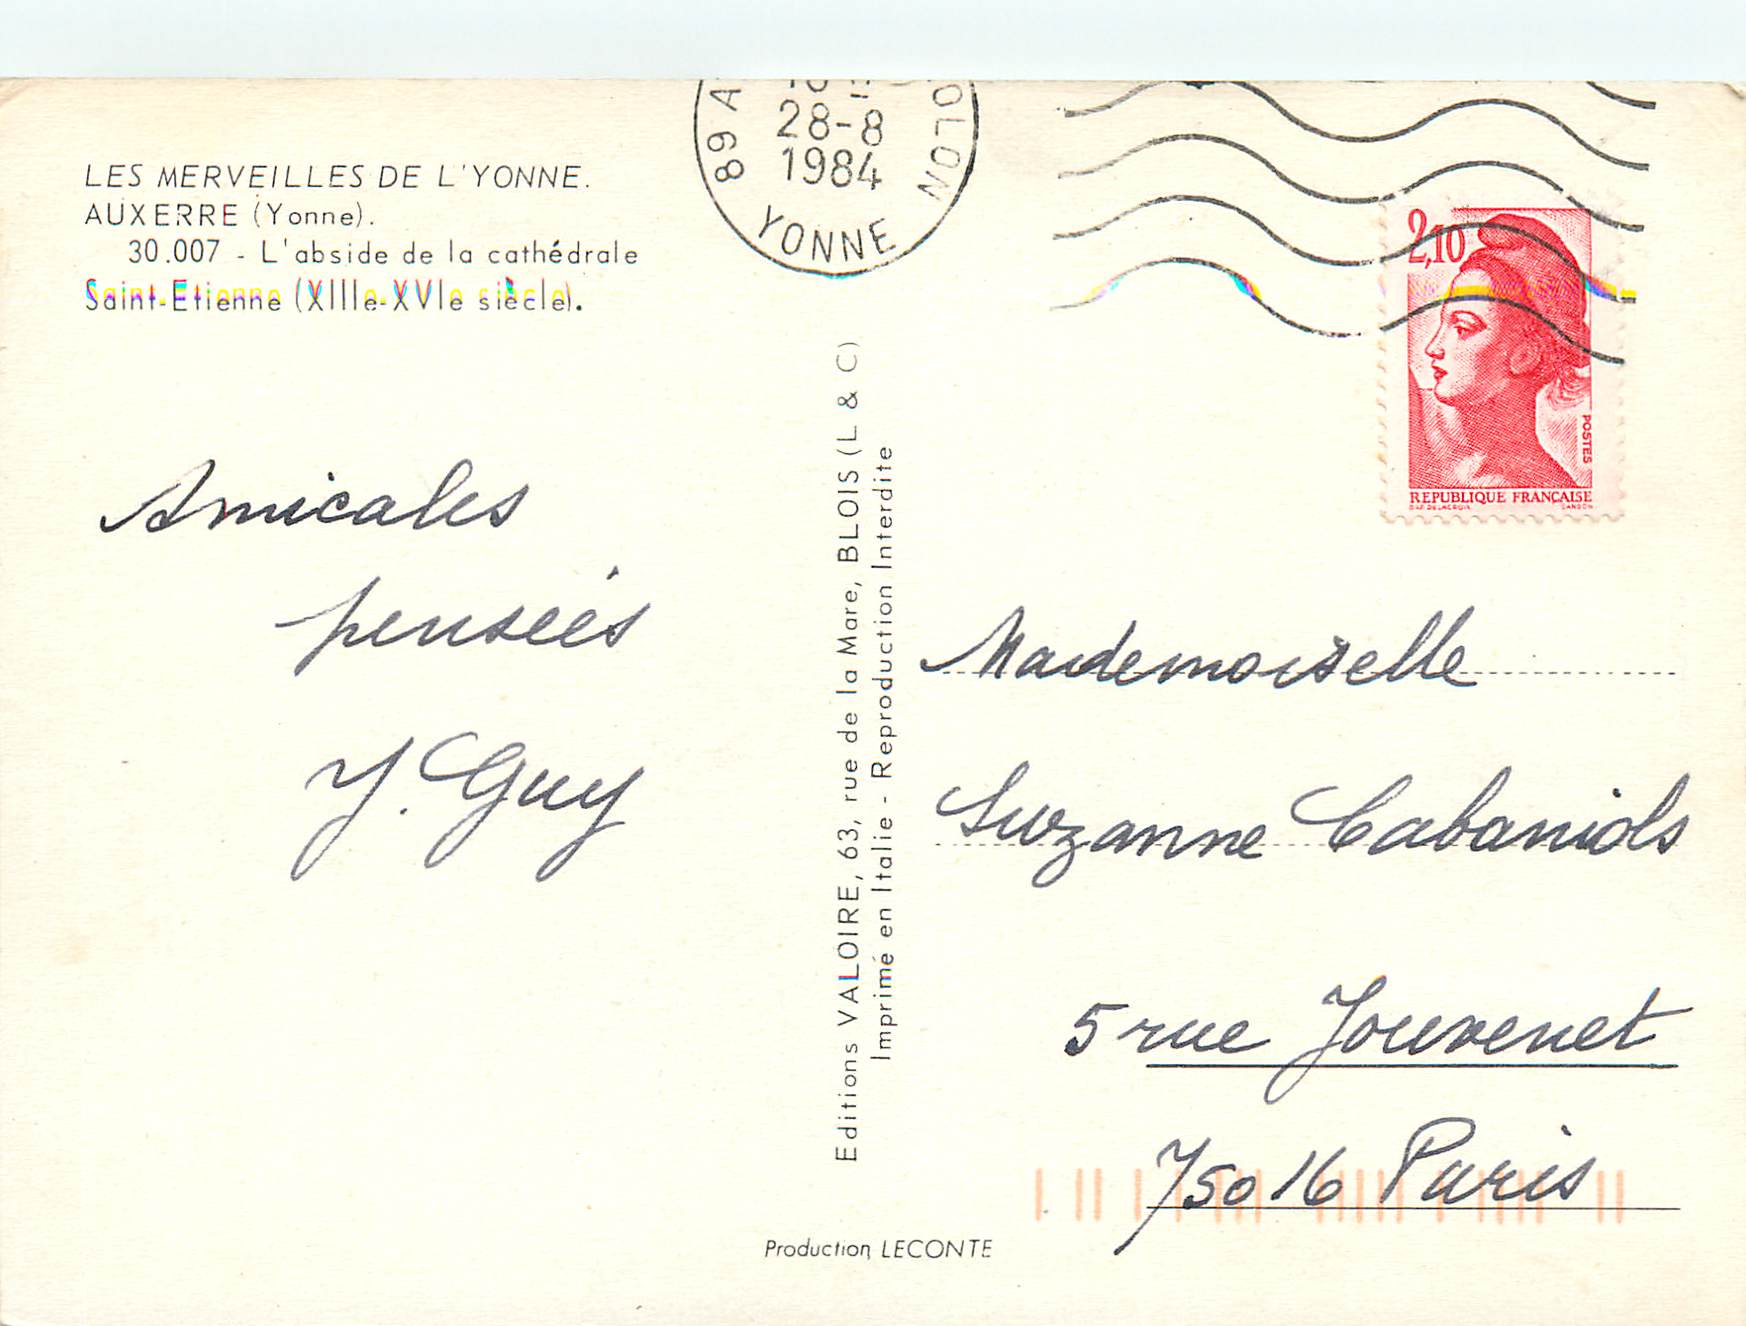 LES MERVEILLES DE L'YONNE.
AUXERRE (Yonne).
30.007 - L'abside de la cathédrale
Saint-Etienne (XIIIe-XVIe siècle).
Amicales
pensées
Y. Guy
Editions VALOIRE, 63, rue de la Mare, BLOIS (L & C)
Imprimé en Italie - Reproduction Interdite
Production LECONTE
89 A OLON
28-8
1984
YONNE
2,10
POSTES
REPUBLIQUE FRANÇAISE
D'AP. DELACROIX GANDON
Mademoiselle
Suzanne Cabaniols
5 rue Jouvenet
75016 Paris